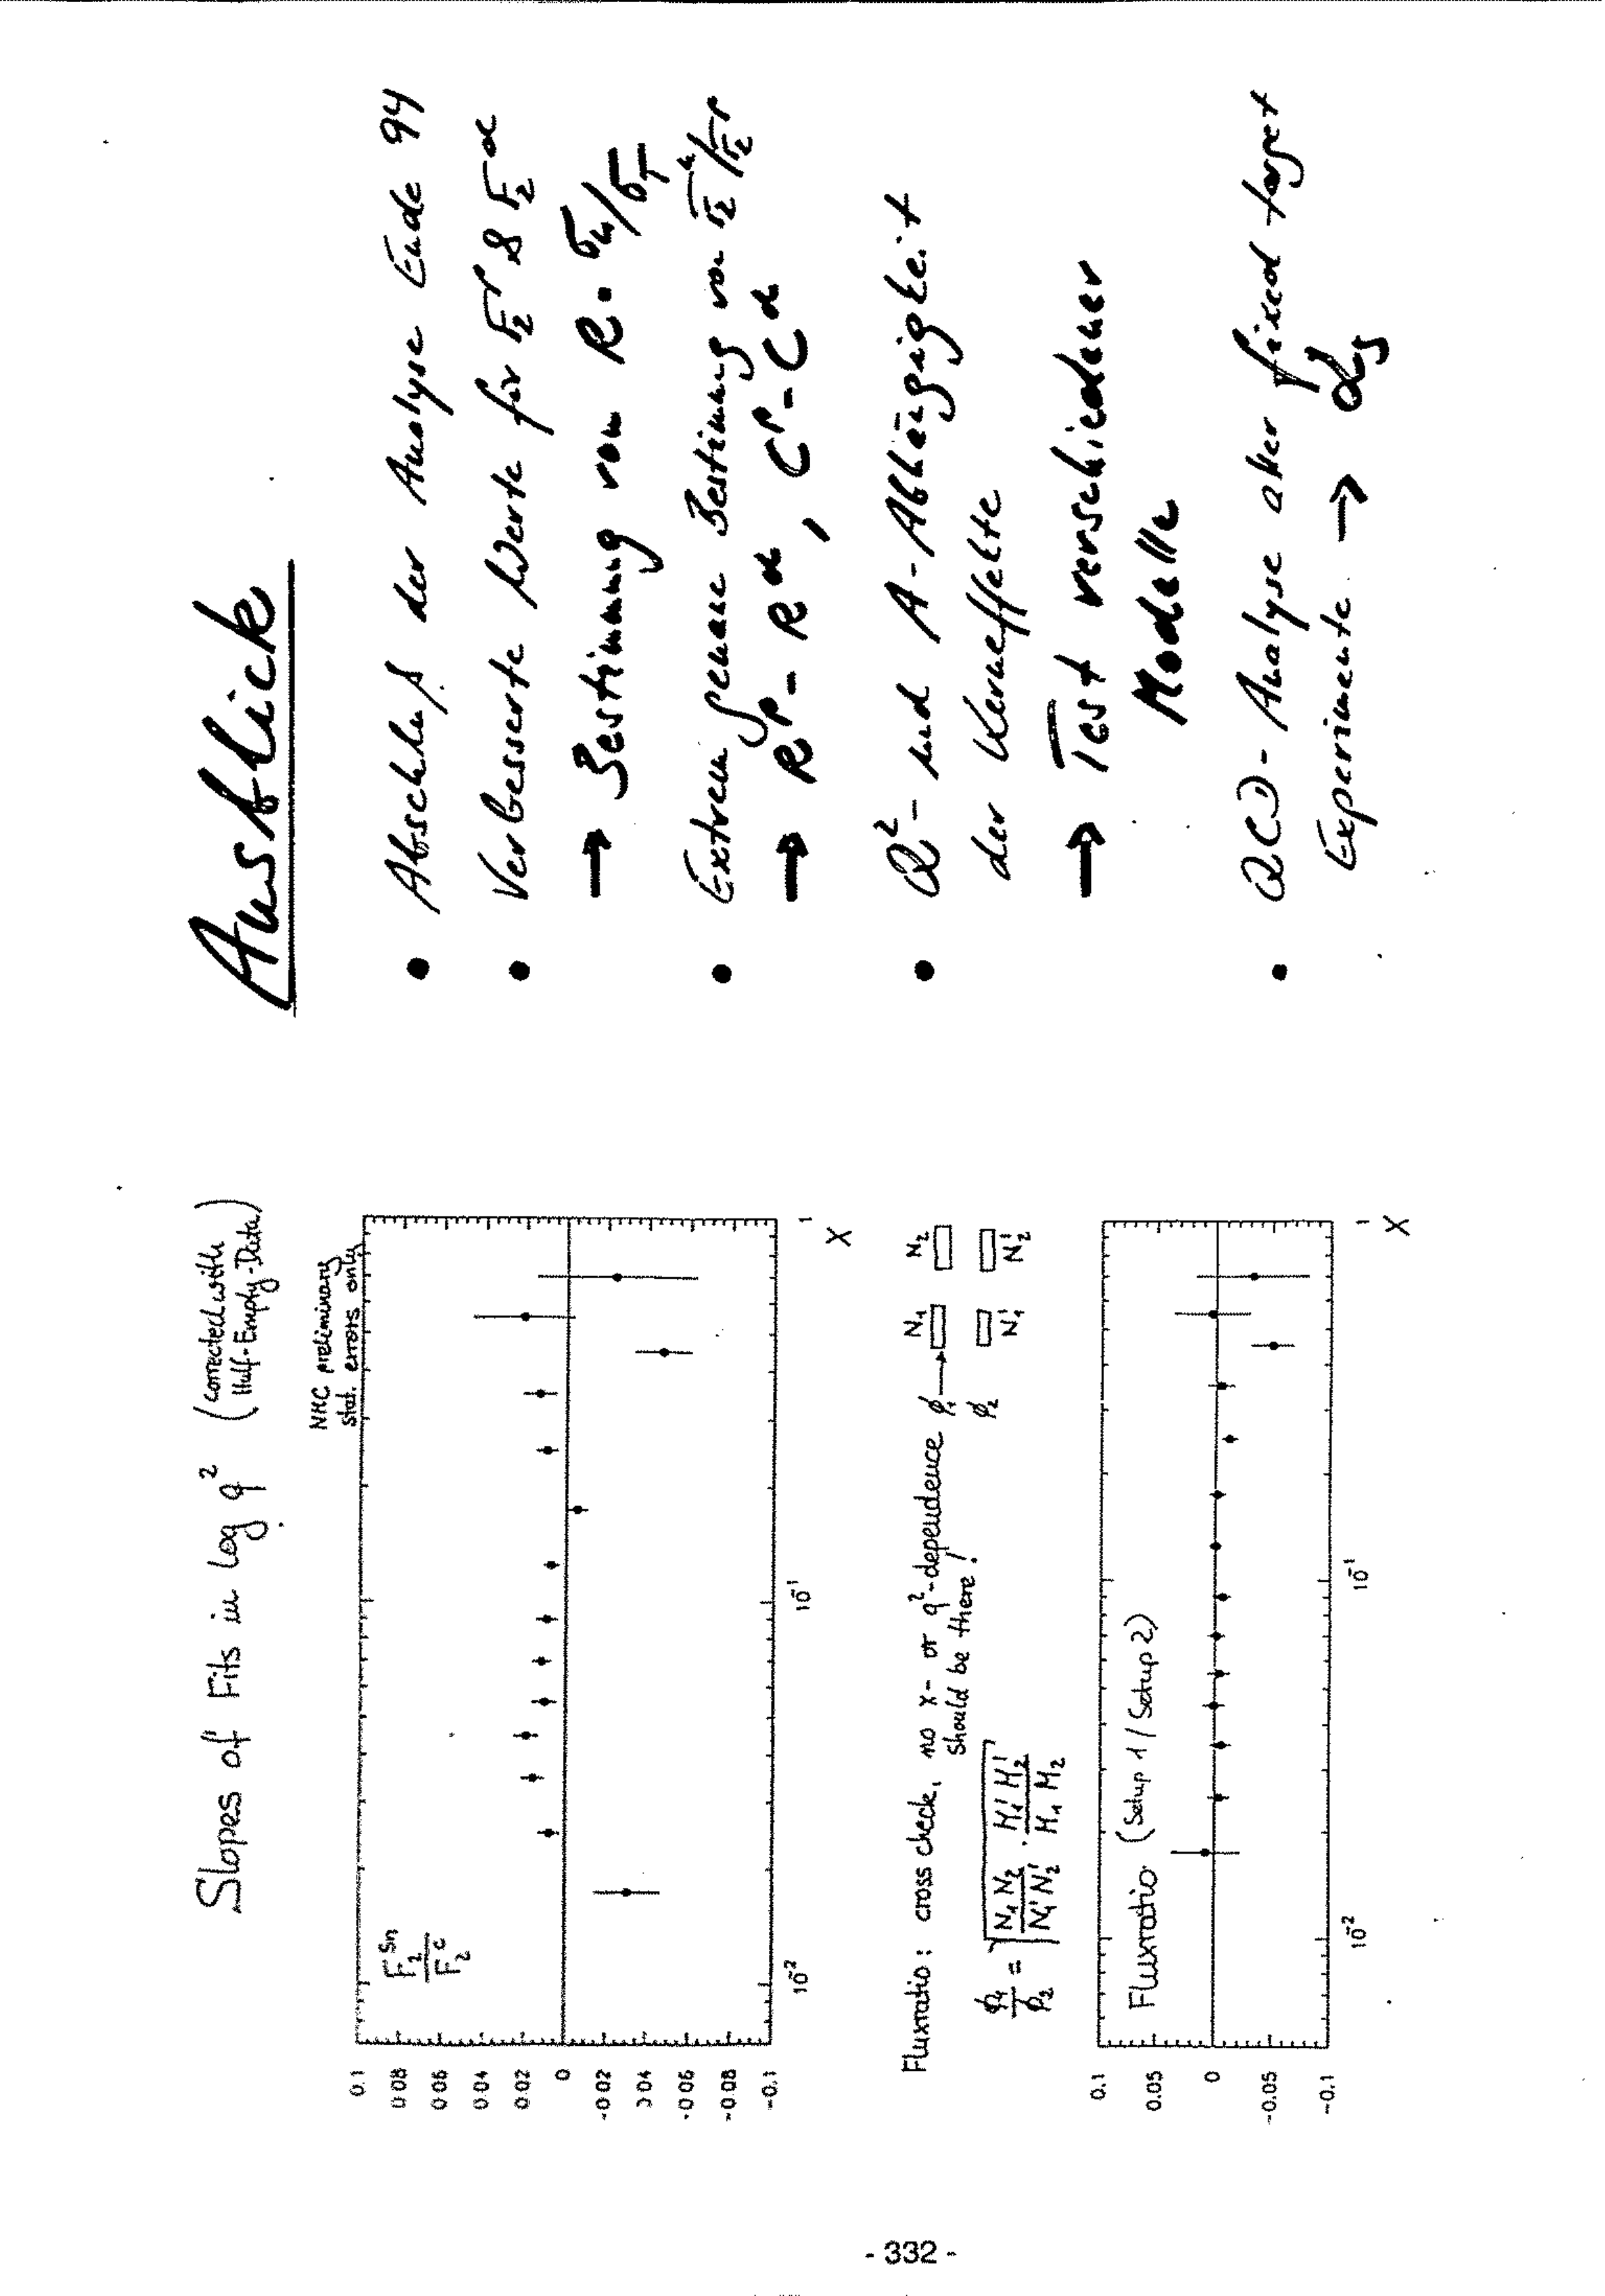 Slopes of Fits in Log q² (corrected with
Half-Empty-Data)
NMC preliminary
stat. errors only
F₂^Sn / F₂^C
0.1
0.08
0.06
0.04
0.02
0
-0.02
-0.04
-0.06
-0.08
-0.1
10⁻²
10⁻¹
1
X
Fluxratio: cross check, no x- or q²-dependence
should be there!
ϕ₁ N₁ N₂
ϕ₂ N₁' N₂'
ϕ₁/ϕ₂ = √(N₁ N₂ / N₁' N₂' · M₁' M₂' / M₁ M₂)
Fluxratio (Setup 1 / Setup 2)
0.1
0.05
0
-0.05
-0.1
10⁻²
10⁻¹
1
X
Ausblick
• Abschluß der Analyse Ende 94
• Verbesserte Werte für F₂^p & F₂^d
→ Bestimmung von R = σ_L/σ_T
• Extrem genaue Bestimmung von F₂^n/F₂^p
→ R^p - R^d, C^p - C^d
• Q² - und A-Abhängigkeit
der Kerneffekte
→ Test verschiedener
Modelle
• QCD - Analyse aller fixed target
Experimente → α_s
- 332 -